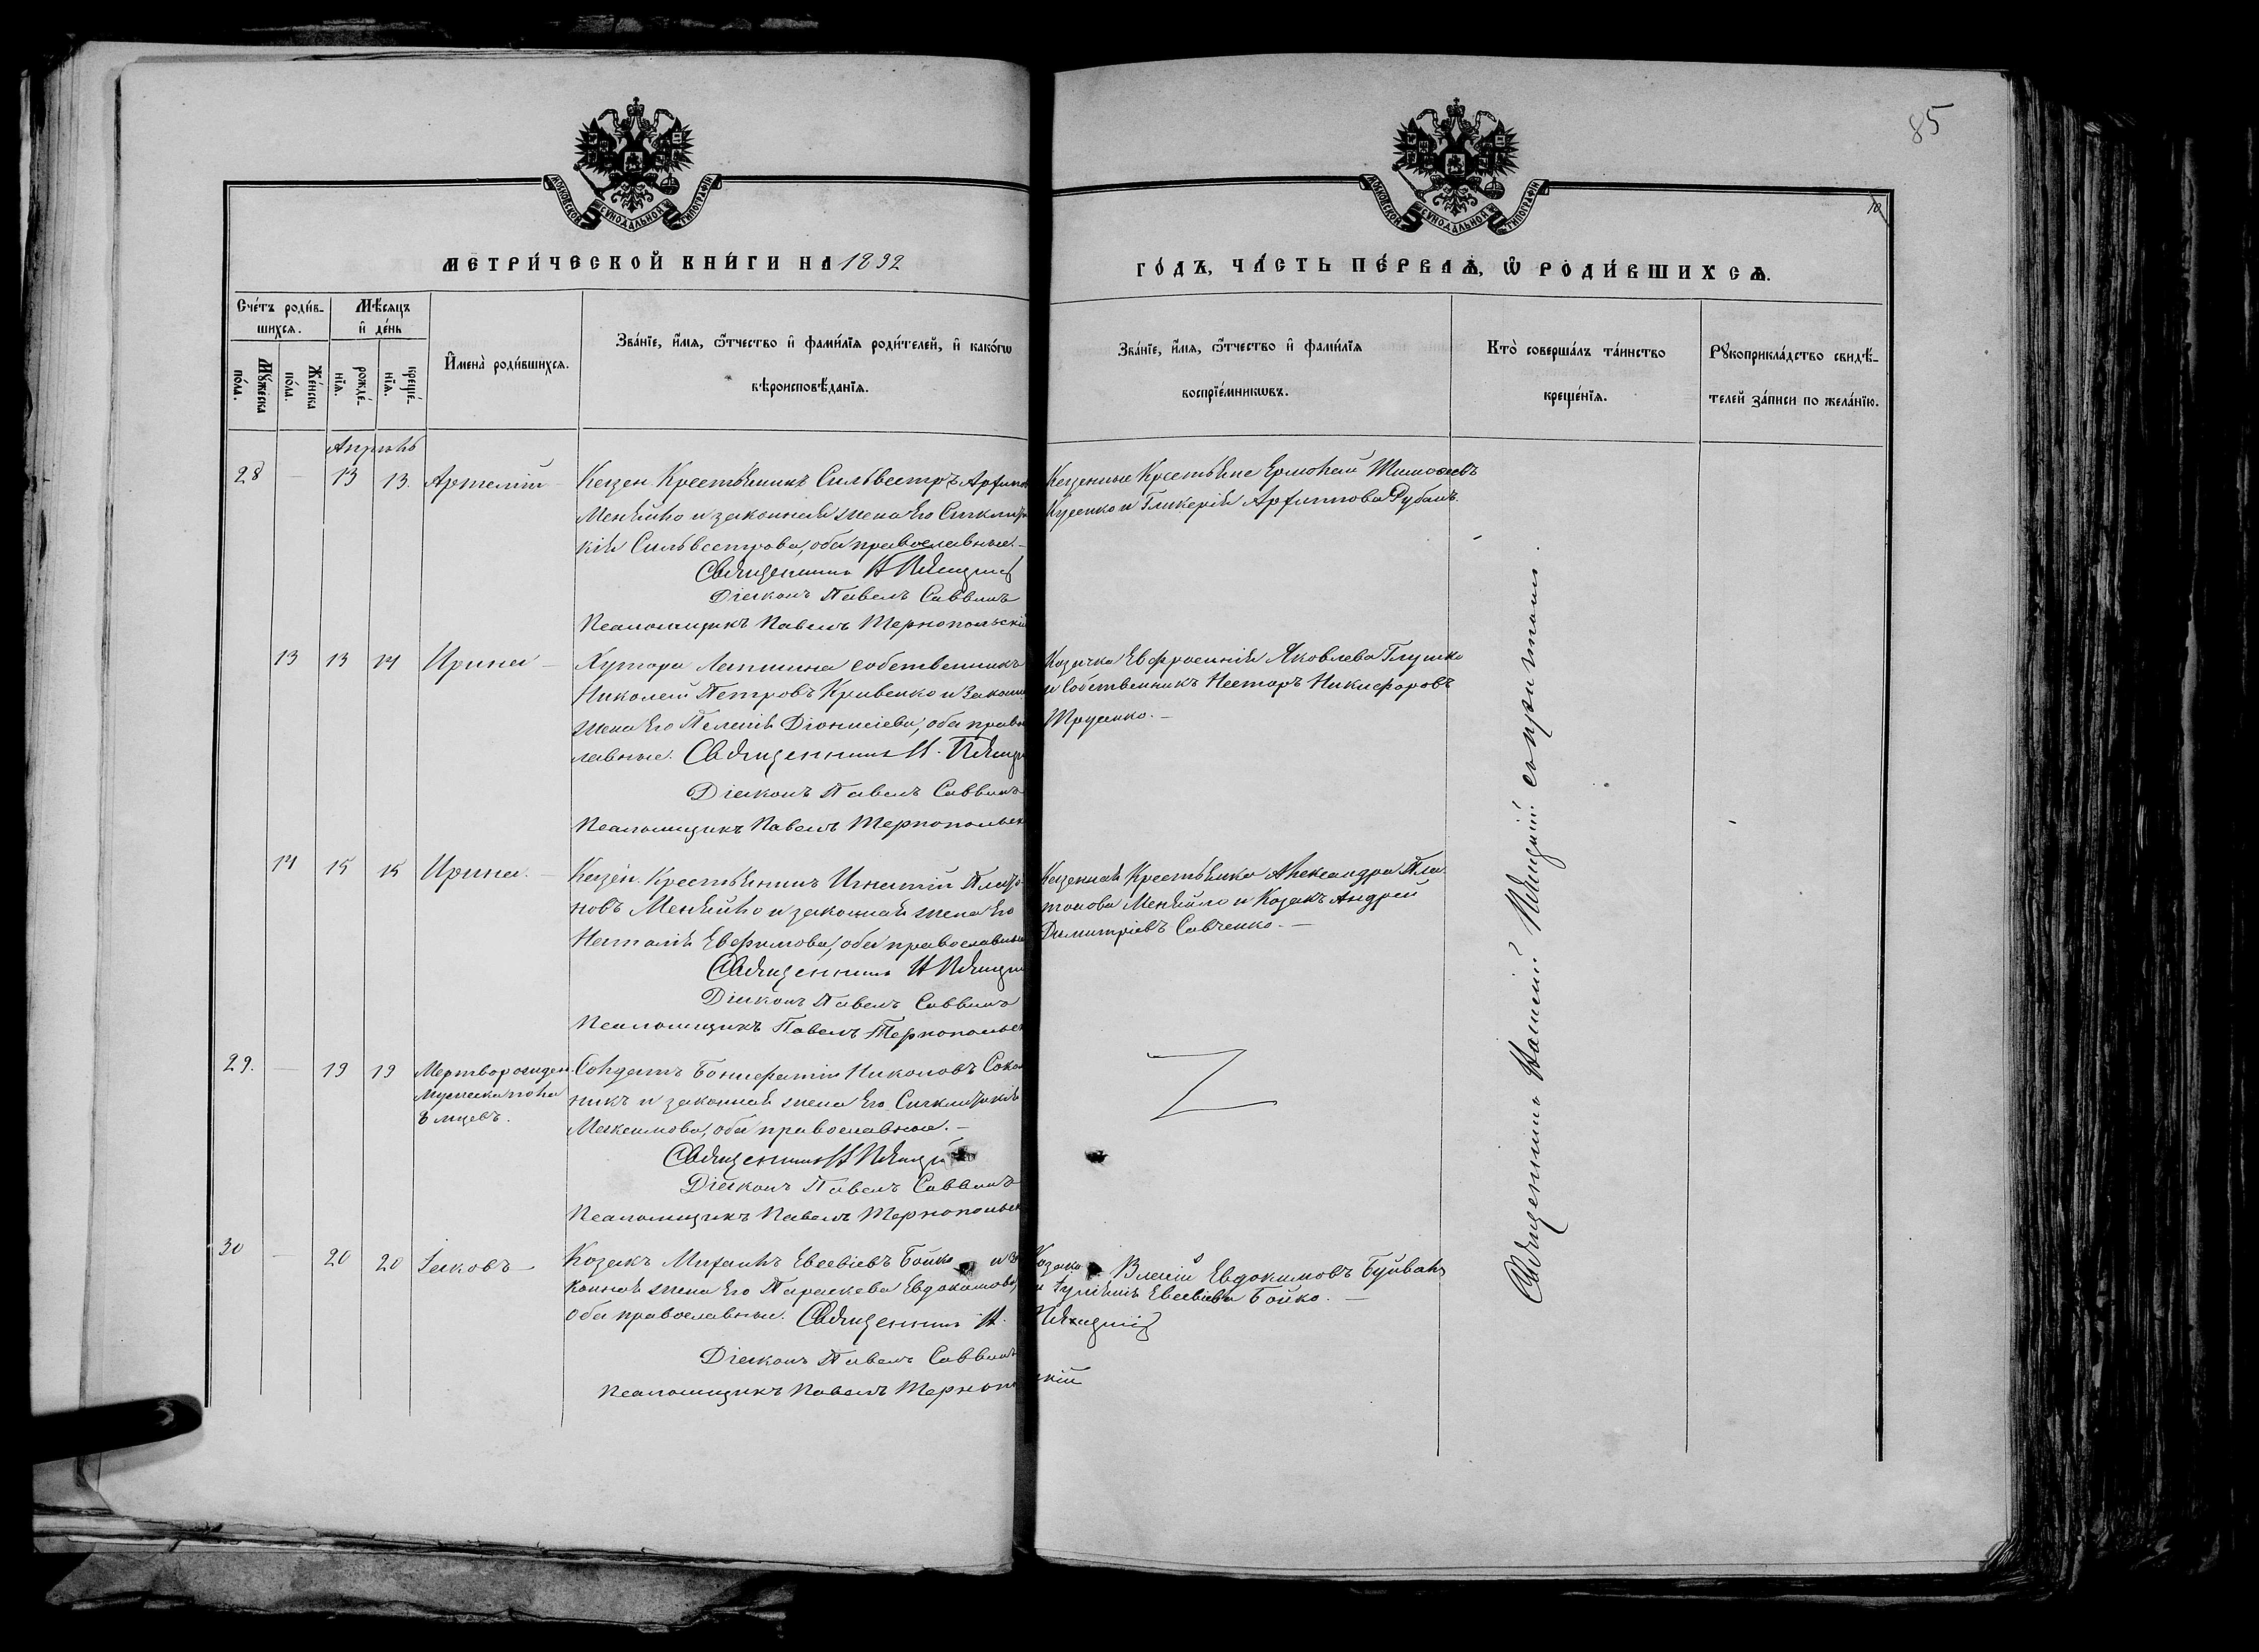 85
10
МОСКОВСКОЙ СѴНОДАЛЬНОЙ ТИПОГРАФІИ
МОСКОВСКОЙ СѴНОДАЛЬНОЙ ТИПОГРАФІИ
МЕТРИ́ЧЕСКОЙ КНИ́ГИ НА 1892
ГО́ДЪ, ЧА́СТЬ ПЕ́РВАѦ, Ѿ РОДИ́ВШИХСѦ.
Сче́тъ роди́в-
шихсѧ.
Мѣ́сѧцъ
и҆ де́нь
Мꙋ́жеска
по́ла.
Же́нска
по́ла.
рожде́-
нїѧ.
креще́-
нїѧ.
И҆мена̀ роди́вшихсѧ.
Зва́нїе, и҆́мѧ, ѻ҆́тчество и҆ фами́лїѧ роди́телей, и҆ како́гѡ
вѣроисповѣ́данїѧ.
Зва́нїе, и҆́мѧ, ѻ҆́тчество и҆ фами́лїѧ
воспрїе́мникѡвъ.
Кто̀ соверша́лъ та́инство
креще́нїѧ.
Рꙋкоприкла́дство свидѣ́-
телей за́писи по жела́нїю.
Апрѣль
28 — 13 13. Артемій — Казен. Крестьянинъ Сильвестръ
Меняйло и законная жена его Синклити
кія Сильвестрова, оба православные. —
Священникъ И
Діаконъ Павелъ Саввинъ
Псаломщикъ Павелъ Тернопольскій
Казенные Крестьяне Ермолай Тимофеевъ
и Гликерія Рубанъ.
13 13 14 Ирина — Хутора собственникъ
Николай Петровъ Кривенко и закон
жена его Пелагія Діонисіева, оба право
лавные. Священникъ И.
Діаконъ Павелъ Саввинъ
Псаломщикъ Павелъ Тернопольск
Козачка Евфросинія Яковлева Глушко
и Собственникъ Несторъ Никифоровъ
14 15 15 Ирина. — Казен. Крестьянинъ Игнатій Плато
новъ Меняйло и законная жена его
Наталія Евфимова, оба православные
Священникъ И
Діаконъ Павелъ Саввинъ
Псаломщикъ Павелъ Тернопольск
Казенная Крестьянка Александра Пла
тонова Меняйло и Козакъ Андрей
Димитріевъ Савченко. —
29. — 19 19 Мертворожден.
мужеска пола
8 мцевъ.
Солдатъ Бонифатій Сокол
никъ и законная жена его Синклитикія
Максимова, оба православные. —
Священникъ И
Діаконъ Павелъ Саввинъ
Псаломщикъ Павелъ Тернопольск
30 — 20 20 Іаковъ — Козакъ Михаилъ Евсевіевъ Бойко и за
конная жена его Параскева Евдокимова,
оба православные. Священникъ И.
Діаконъ Павелъ Саввинъ
Псаломщикъ Павелъ Тернопольскій
Козаки Власій Евдокимовъ
и Іуліанія Евсевіева Бойко. —
Священникъ съ причтомъ.